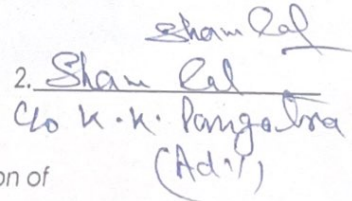 Sham Lal
2. Sham Lal
C/o K.K. Pangotra
(Adv)
on of